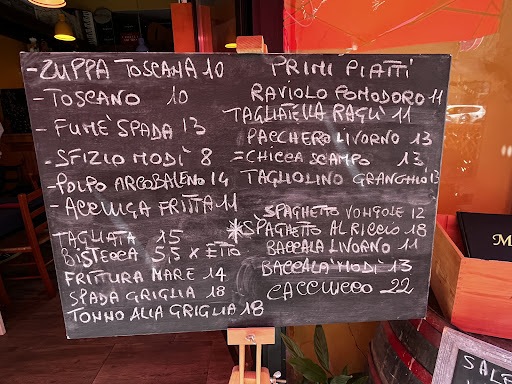 -ZUPPA TOSCANA 10
-TOSCANO 10
-FUMÈ SPADA 13
-SFIZIO MODÌ 8
-POLPO ARCOBALENO 14
-ACCIUGA FRITTA 11
TAGLIATA 15
BISTECCA 5,5 x ETTO
FRITTURA MARE 14
SPADA GRIGLIA 18
TONNO ALLA GRIGLIA 18
PRIMI PIATTI
RAVIOLO POMODORO 11
TAGLIATELLA RAGÙ 11
PACCHERO LIVORNO 13
=CHICCA SCAMPO 13
TAGLIOLINO GRANCHIO 13
SPAGHETTO VONGOLE 12
*SPAGHETTO AL RICCIO 18
BACCALÀ LIVORNO 11
BACCALÀ MODÌ 13
CACCIUCCO 22
M
SALE